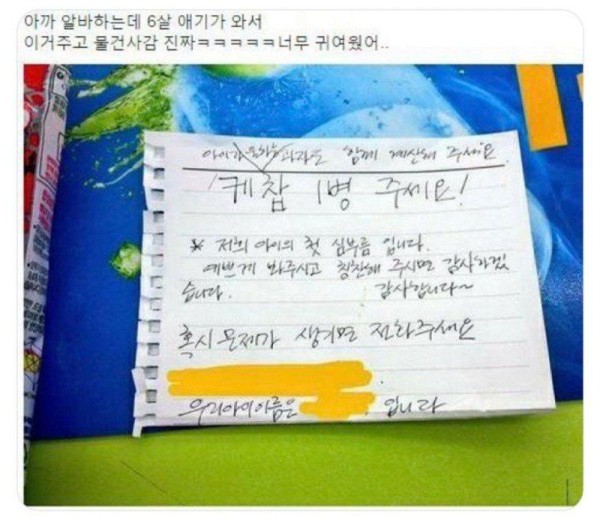 아까 알바하는데 6살 애기가 와서
이거주고 물건사감 진짜ㅋㅋㅋㅋㅋ너무 귀여웠어..
아이가 원하는 과자도 함께 계산해 주세요
케찹 1병 주세요!
※ 저희 아이의 첫 심부름 입니다.
예쁘게 봐주시고 칭찬해 주시면 감사하겠
습니다. 감사합니다~
혹시 문제가 생기면 전화주세요
우리아이이름은 입니다